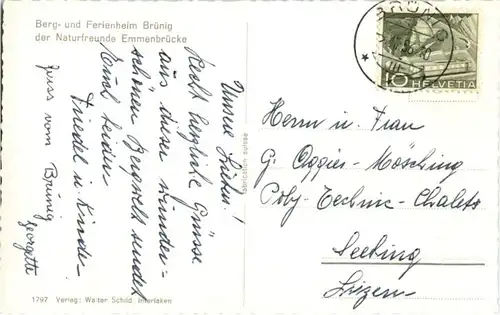 Berg- und Ferienheim Brünig
der Naturfreunde Emmenbrücke
Unsere Lieben!
Recht herzliche Grüsse
aus dieser wunder-
schönen Bergwelt sendet
Euch beiden
Friedel u. Kinder
Gruss vom Brünig
Georgette
1797 Verlag: Walter Schild Interlaken
Fabrication suisse
BRÜNIG
10 HELVETIA
Herrn u. Frau
G.
Poly-Technic-Chalets
Luzern